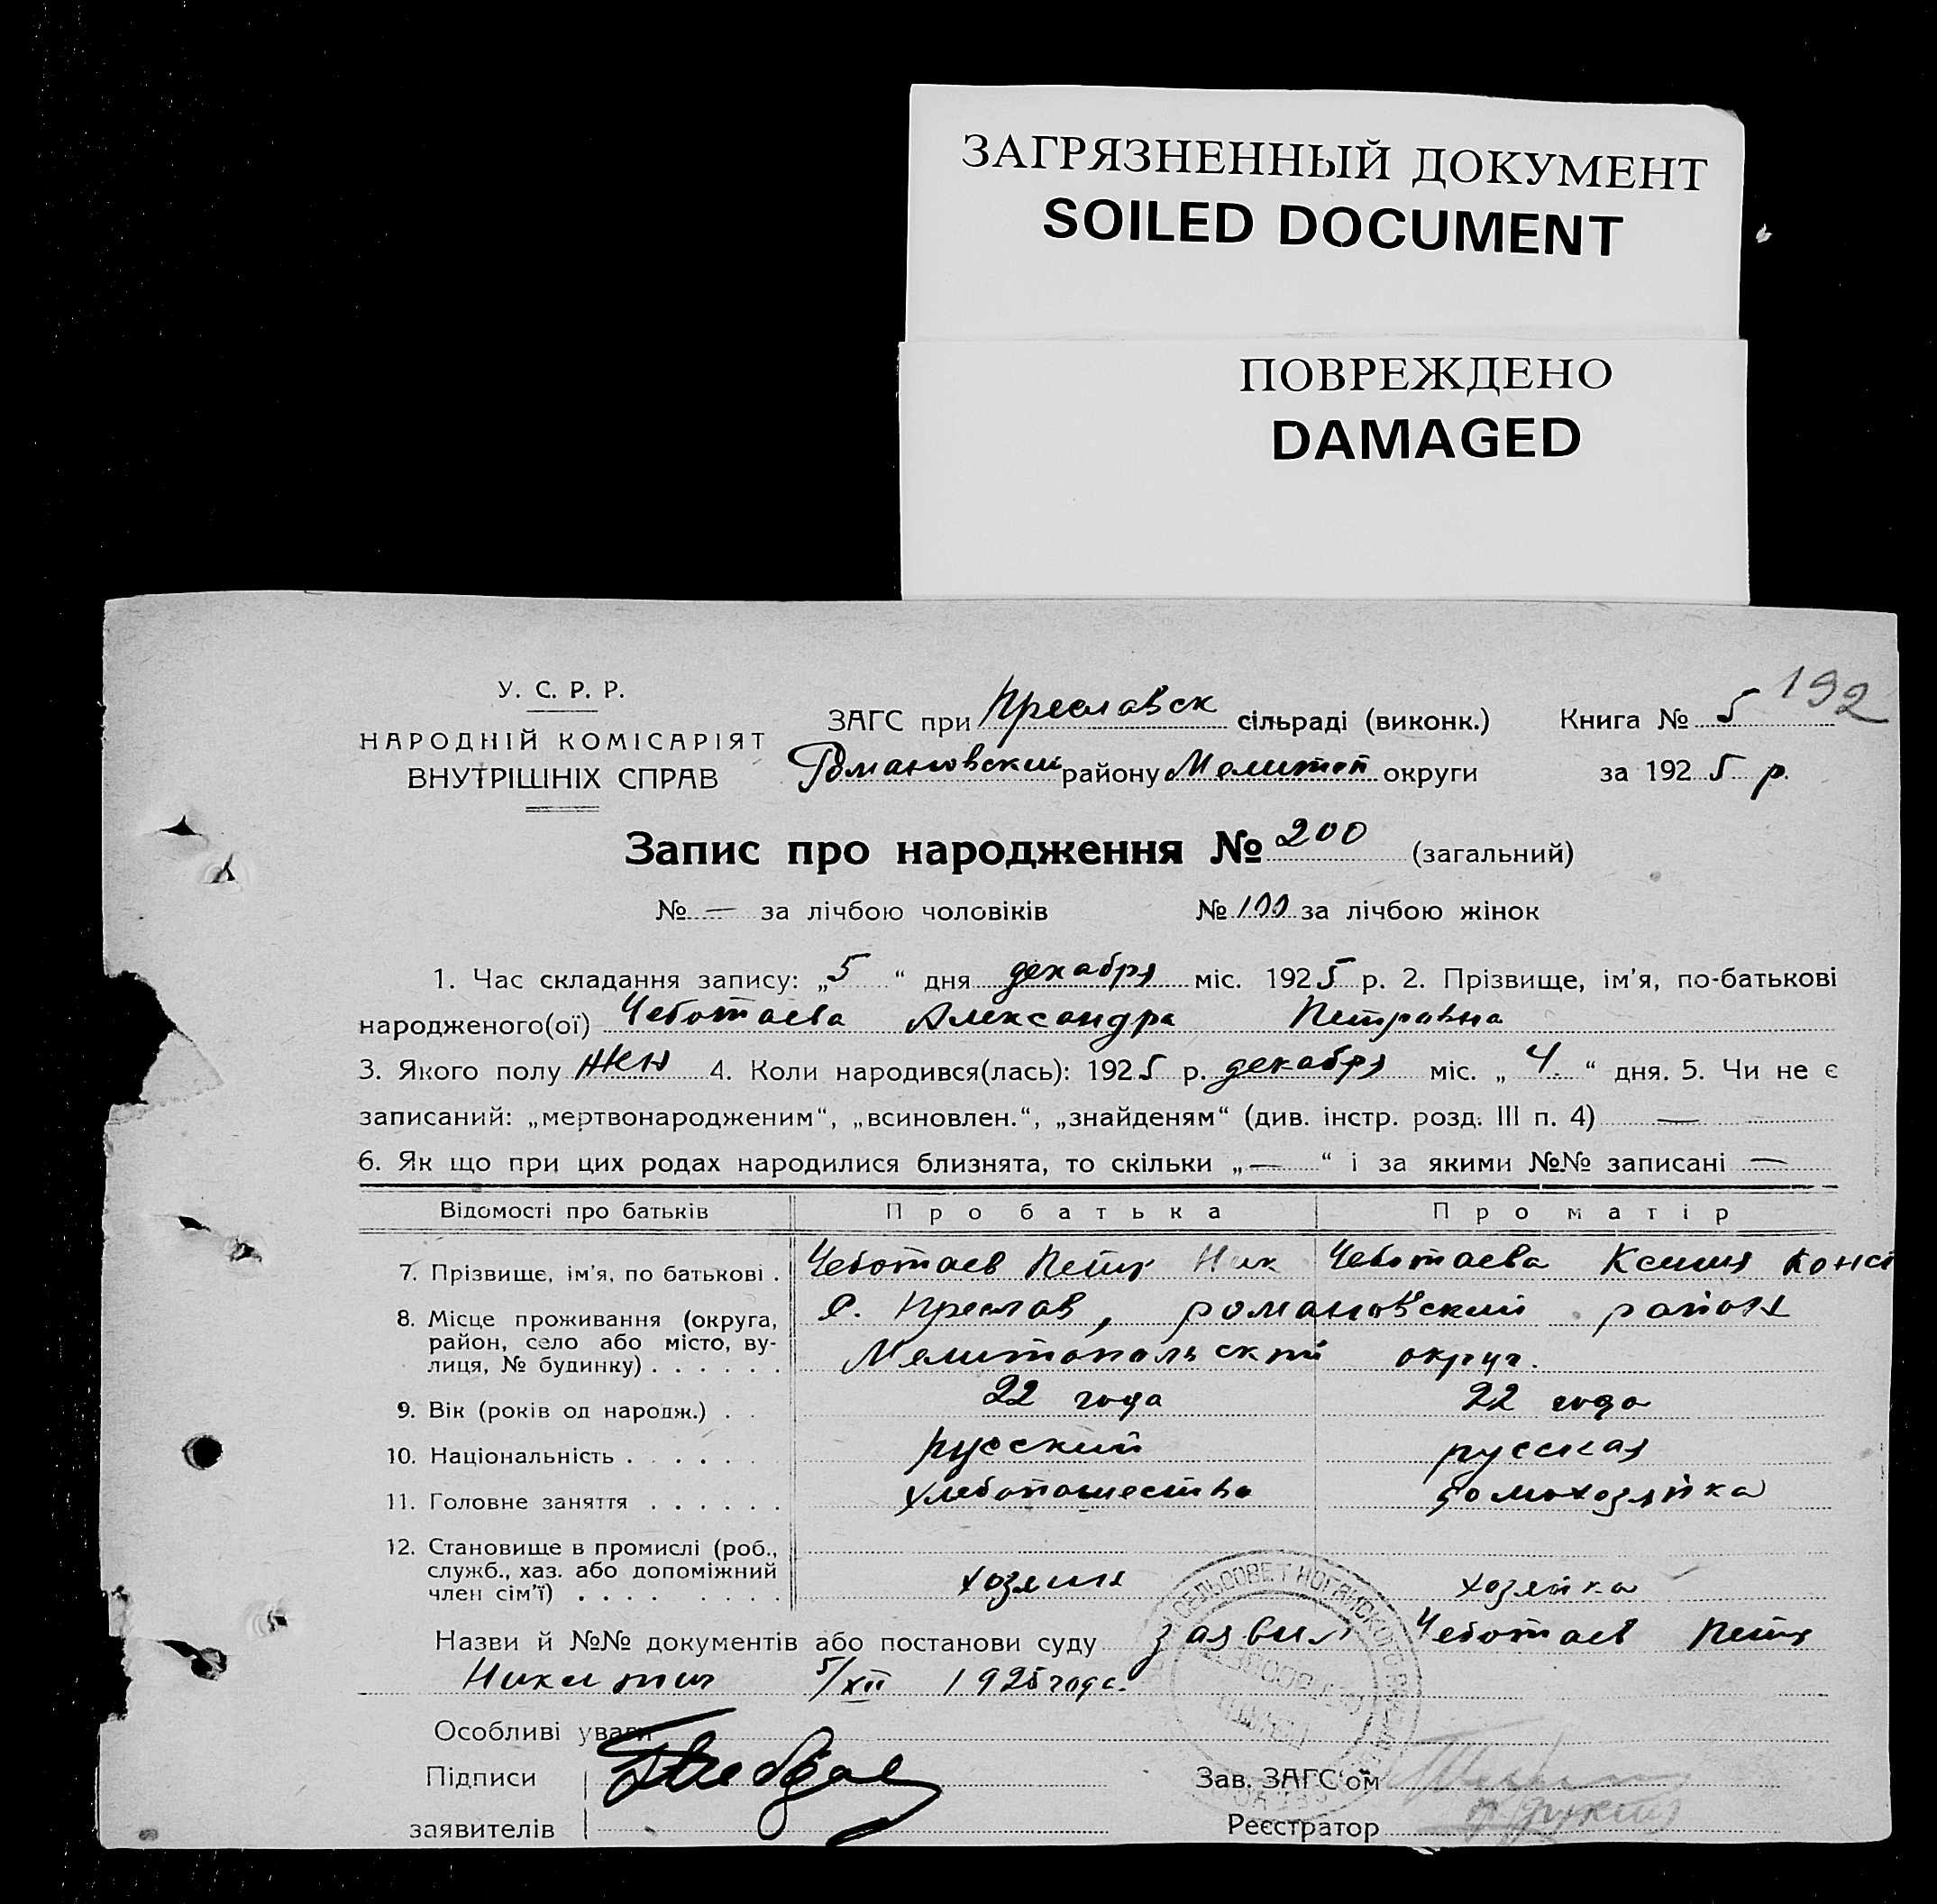 ЗАГРЯЗНЕННЫЙ ДОКУМЕНТ
SOILED DOCUMENT
ПОВРЕЖДЕНО
DAMAGED
192
У. С. Р. Р.
НАРОДНІЙ КОМІСАРІЯТ
ВНУТРІШНІХ СПРАВ
ЗАГС при Преславск сільраді (виконк.) Книга № 5
Романовский району Мелитоп округи за 1925 р.
Запис про народження № 200 (загальний)
№ — за лічбою чоловіків № 100 за лічбою жінок
1. Час складання запису: „5“ дня декабря міс. 1925 р. 2. Прізвище, ім'я, по-батькові
народженого(ої) Чеботаева Александра Петровна
3. Якого полу жен 4. Коли народився(лась): 1925 р. декабря міс. „4.“ дня. 5. Чи не є
записаний: „мертвонародженим“, „всиновлен.“, „знайденям“ (див. інстр. розд. III п. 4) —
6. Як що при цих родах народилися близнята, то скільки „—“ і за якими №№ записані —
Відомості про батьків Про батька Про матір
7. Прізвище, ім'я, по батькові . Чеботаев Петр Ник Чеботаева Ксения Конст
8. Місце проживання (округа, с. Преслав, романовский район
район, село або місто, ву-
лиця, № будинку) . . . . . . Мелитопольский округ.
9. Вік (років од народж.) . . 22 года 22 года
10. Національність . . . . . . русский русская
11. Головне заняття . . . . . . хлебопашество домохозяйка
12. Становище в промислі (роб.,
служб., хаз. або допоміжний
член сім'ї) . . . . . . . . хозяин хозяйка
Назви й №№ документів або постанови суду заявил Чеботаев Петр
Никитич 5/XII 1925 года.
Особливі уваги
Підписи
Зав. ЗАГС'ом
заявителів
Реєстратор
СЕЛЬСОВЕТ НОГАЙСКОГО